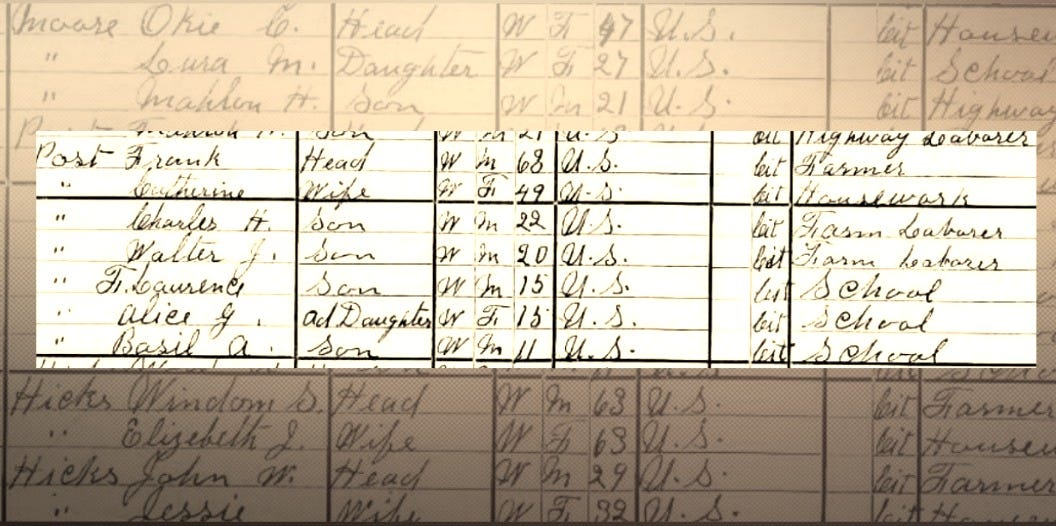 Moore Okie C. Head W F 47 U.S. Cit Housew
" Lura M. Daughter W F 27 U.S. Cit School
" Mahlon H. Son W M 21 U.S. Cit Highway
Mahlon H. Son W M 21 U.S. Cit Highway Laborer
Post Frank Head W M 68 U.S. Cit Farmer
" Catherine Wife W F 49 U.S. Cit Housework
" Charles H. Son W M 22 U.S. Cit Farm Laborer
" Walter J. Son W M 20 U.S. Cit Farm Laborer
" F. Laurence Son W M 15 U.S. Cit School
" Alice G. ad Daughter W F 15 U.S. Cit School
" Basil A. Son W M 11 U.S. Cit School
Hicks Windom S. Head W M 63 U.S. Cit Farmer
" Elizebeth J. Wife W F 63 U.S. Cit Housew
Hicks John W. Head W M 29 U.S. Cit Farmer
" Jessie Wife W F 32 U.S. Cit